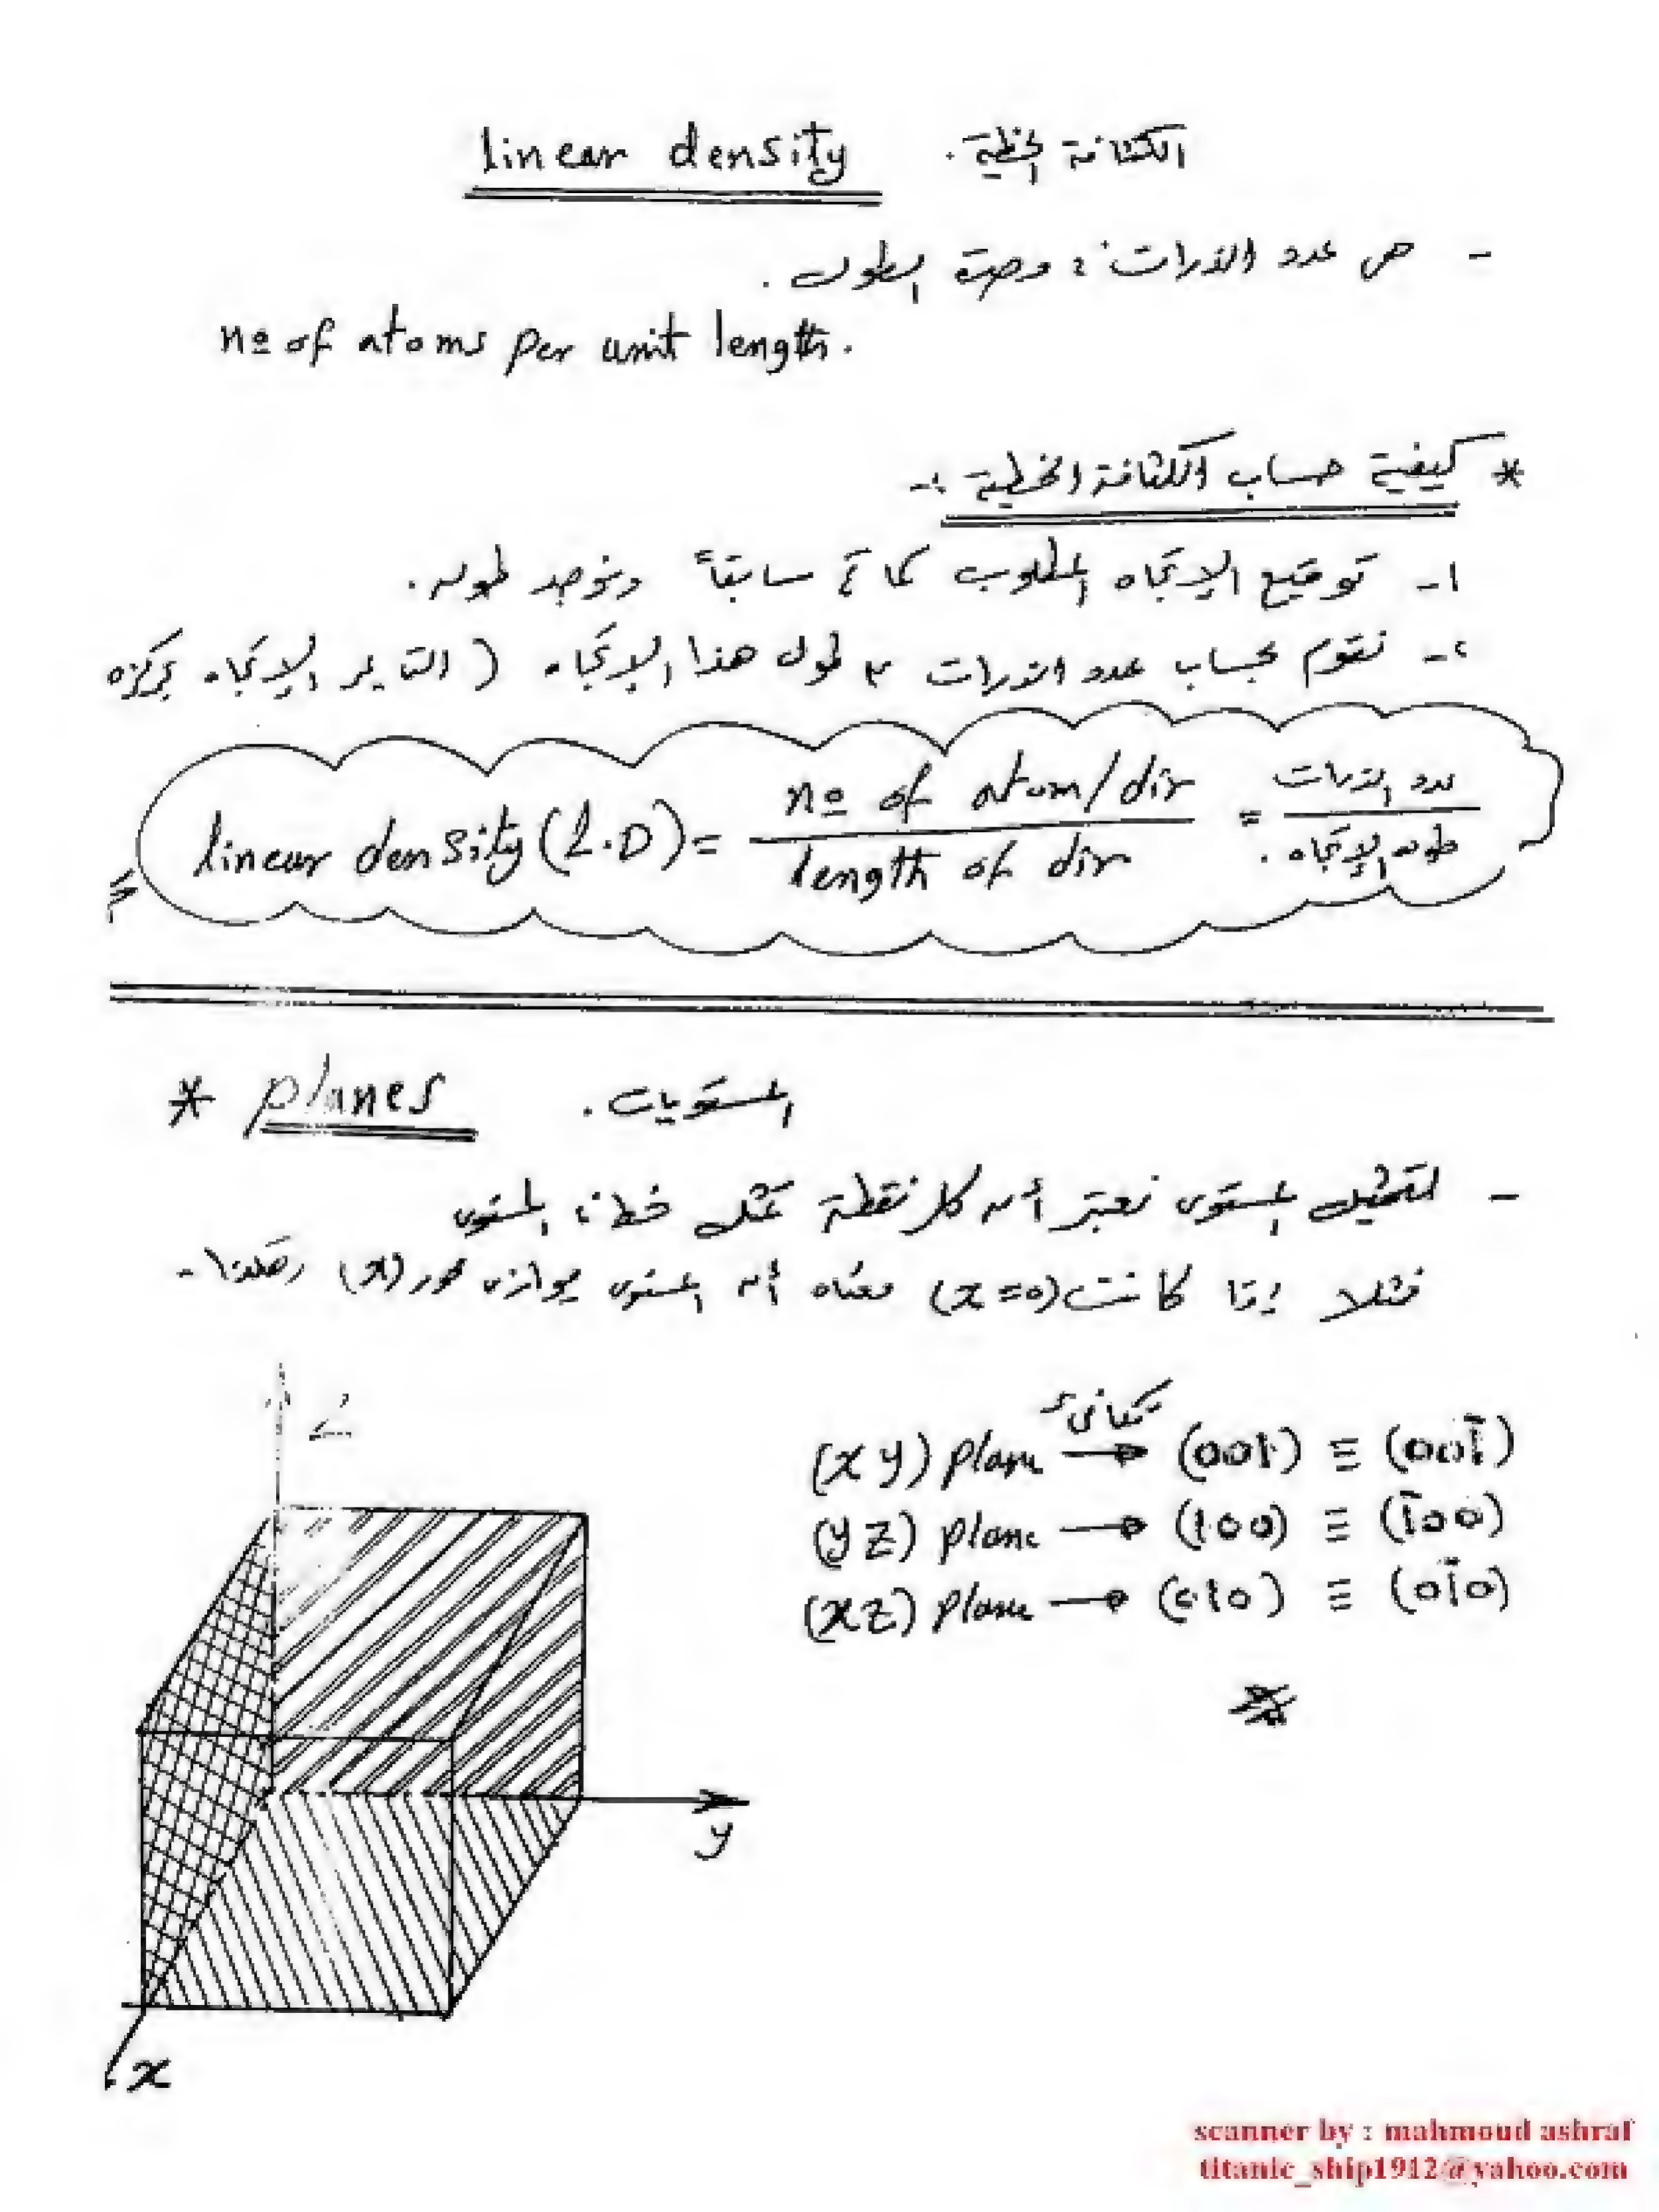 linear density الكثافة الخطية .
- هى عدد الذرات فى وحدة الطول .
nº of atoms per unit length.
* كيفية حساب الكثافة الخطية :-
١- توقيع الإتجاه المطلوب كما تم سابقاً ونوجد طوله .
٢- نقوم بحساب عدد الذرات على طول هذا الإتجاه ( التى يمر الإتجاه بمركزه
linear density (L.D) = nº of atom/dir / length of dir = عدد الذرات / طول الإتجاه .
* planes المستويات .
- لتمثيل المستوى نعتبر أن كل نقطة تمثل خط فى المستوى
فمثلا إذا كانت (x=0) معناه أن المستوى يوازى محور (x) وهكذا -
Z
تكافىء
(x y) plane → (001) ≡ (001̄)
(y z) plane → (100) ≡ (1̄00)
(x z) plane → (010) ≡ (01̄0)
y
x
scanner by : mahmoud ashraf
titanic_ship1912@yahoo.com